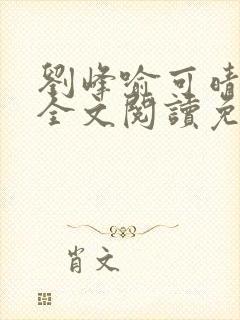 劉峰喻可晴
全文閱讀免
肖文